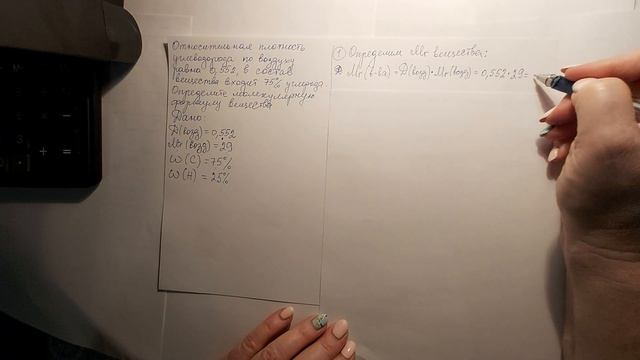 Относительная плотность
углеводорода по воздуху
равна 0,552, в состав
вещества входит 75% углерода.
Определите молекулярную
формулу вещества
Дано:
D(возд) = 0,552
Mr(возд) = 29
ω(C) = 75%
ω(H) = 25%
① Определим Mr вещества:
Mr(в-ва) = D(возд)·Mr(возд) = 0,552·29=